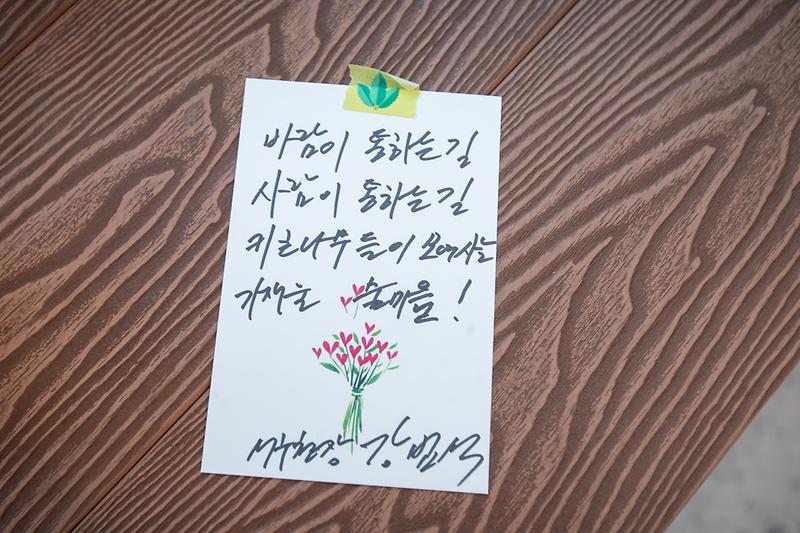 바람이 통하는 길
사람이 통하는 길
키큰나무들이 모여사는
가재울 숲마을!
서구청장 강범석